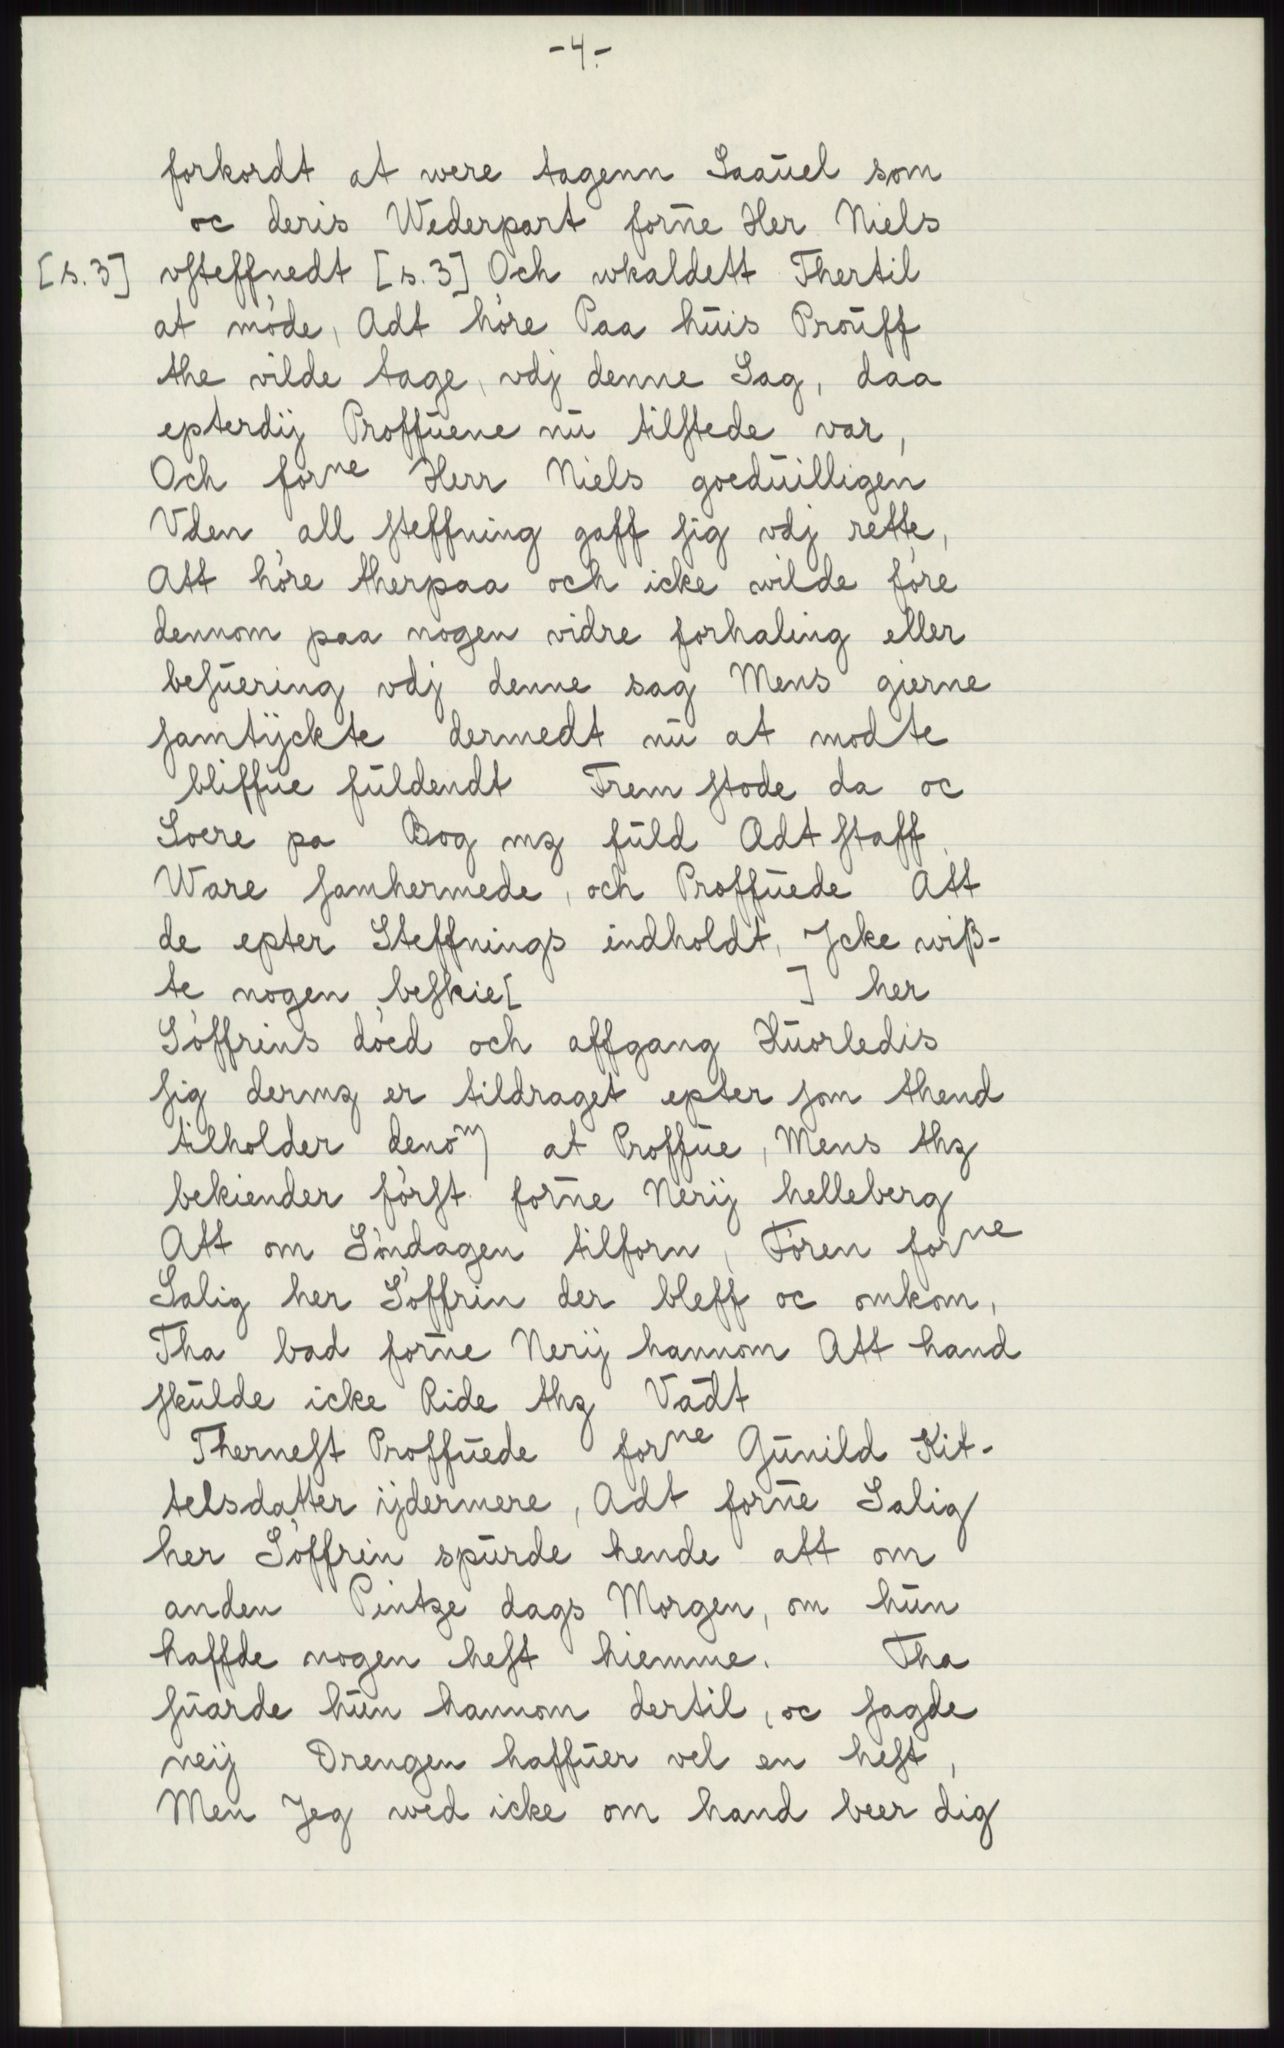 -4.-
forkordt at were tagenn Saauel som
oc deris Wederpart forne Her Niels
[s.3] vsteffnedt [s.3] Och wkaldett Thertil
at møde, Adt høre Paa huis Prouff
the vilde tage, vdj denne Sag, daa
epterdij Proffuene nu tilstede var,
Och forne Herr Niels goeduilligen
Vden all steffning gaff sig vdj rette,
Att høre therpaa och icke wilde føre
dennom paa nogen vidre forhaling eller
besuering vdj denne sag Mens gierne
samtyckte dermedt nu at modte
bliffue fuldendt Frem stode da oc
Soere pa Bog mz fuld Adt staff
Ware samhermede, och Proffuede Att
de epter Steffnings indholdt, Jcke wiß-
te nogen beskie[ ] her
Søffrins døed och affgang Huorledis
sig dermz er tildraget epter som thend
tilholder denom at Proffue, Mens thz
bekiender først forne Nerij helleberg
Att om Søndagen tilforn, Føren forne
Salig her Søffrin der bleff oc omkom,
Tha bad forne Nerij hannom Att hand
skulde icke Ride thz Vadt
Thernest Proffuede forne Gunild Kit-
telsdatter ijdermere, Adt forne Salig
her Søffrin spurde hende att om
anden Pintze dags Morgen, om hun
haffde nogen hest hiemme. Tha
suarde hun hannom dertil, oc sagde
neij Drengen haffuer vel en hest,
Men Jeg wed icke om hand beer dig